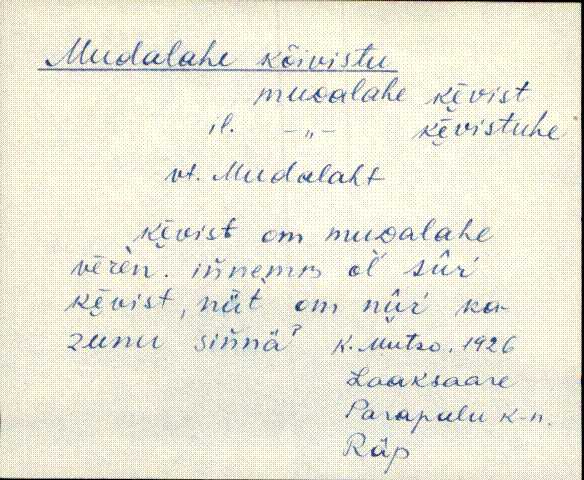 Mudalahe kõivistu
mudalahe kẹ̄vist
il. —„— kẹ̄vistuhe
vt. Mudalaht
kẹ̄vist om mudalahe
vērèn. ińnemm ōl' sūr'
kẹ̄vist, nüt om nūr' ka-
zunu sińnä? K. Mütso. 1926
Laaksaare
Parapalu k-n.
Räp